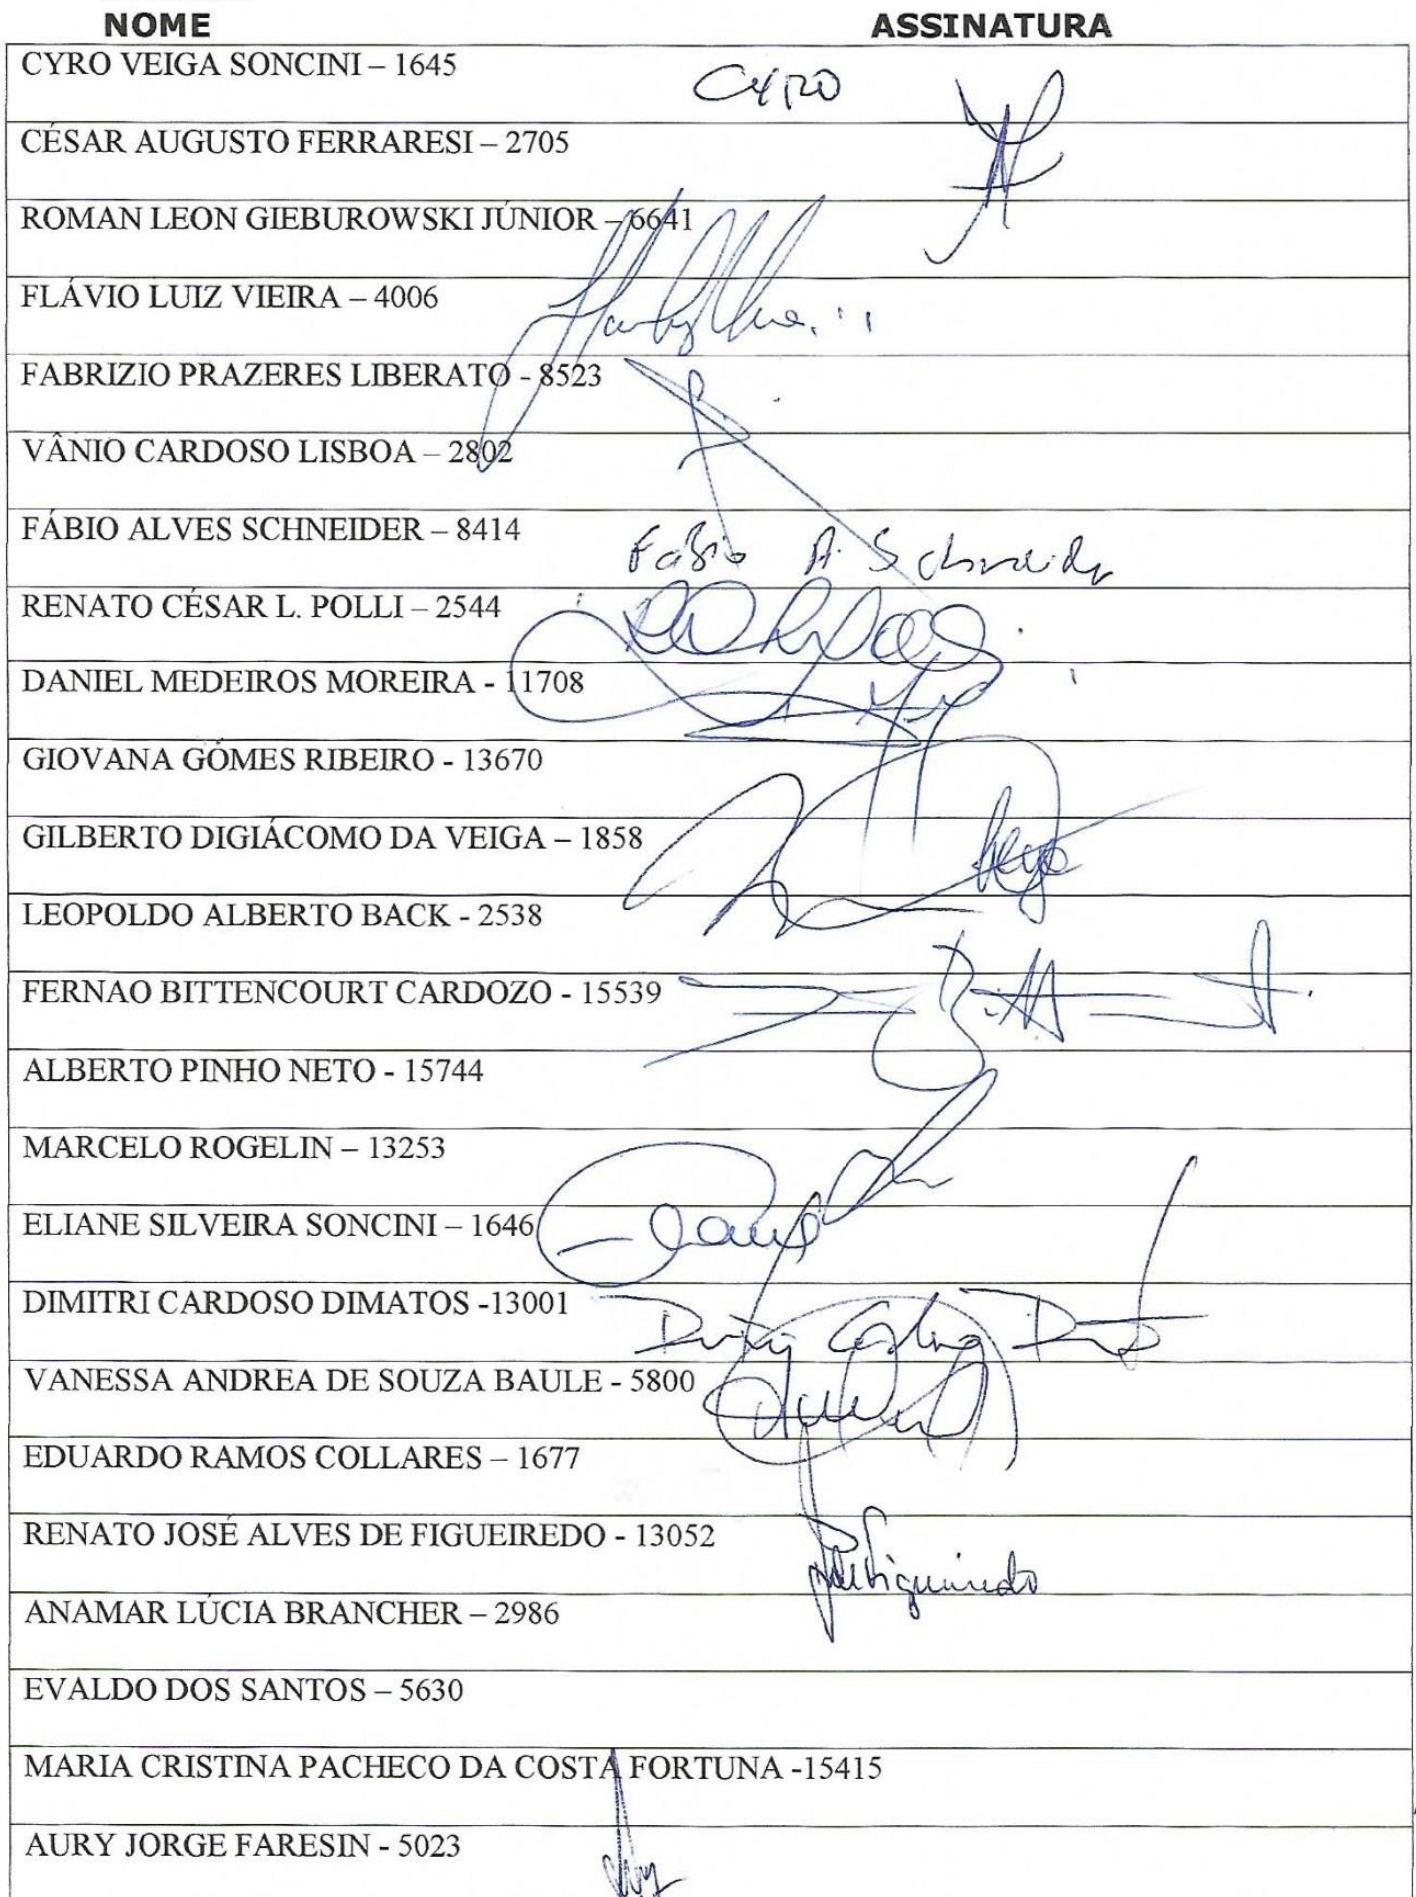 NOME ASSINATURA
CYRO VEIGA SONCINI – 1645 CYRO
CÉSAR AUGUSTO FERRARESI – 2705
ROMAN LEON GIEBUROWSKI JÚNIOR – 6641
FLÁVIO LUIZ VIEIRA – 4006
FABRIZIO PRAZERES LIBERATO - 8523
VÂNIO CARDOSO LISBOA – 2802
FÁBIO ALVES SCHNEIDER – 8414 Fabio A. Schneider
RENATO CÉSAR L. POLLI – 2544
DANIEL MEDEIROS MOREIRA - 11708
GIOVANA GOMES RIBEIRO - 13670
GILBERTO DIGIÁCOMO DA VEIGA – 1858
LEOPOLDO ALBERTO BACK - 2538
FERNAO BITTENCOURT CARDOZO - 15539
ALBERTO PINHO NETO - 15744
MARCELO ROGELIN – 13253
ELIANE SILVEIRA SONCINI – 1646
DIMITRI CARDOSO DIMATOS -13001
VANESSA ANDREA DE SOUZA BAULE - 5800
EDUARDO RAMOS COLLARES – 1677
RENATO JOSÉ ALVES DE FIGUEIREDO - 13052
ANAMAR LÚCIA BRANCHER – 2986
EVALDO DOS SANTOS – 5630
MARIA CRISTINA PACHECO DA COSTA FORTUNA -15415
AURY JORGE FARESIN - 5023